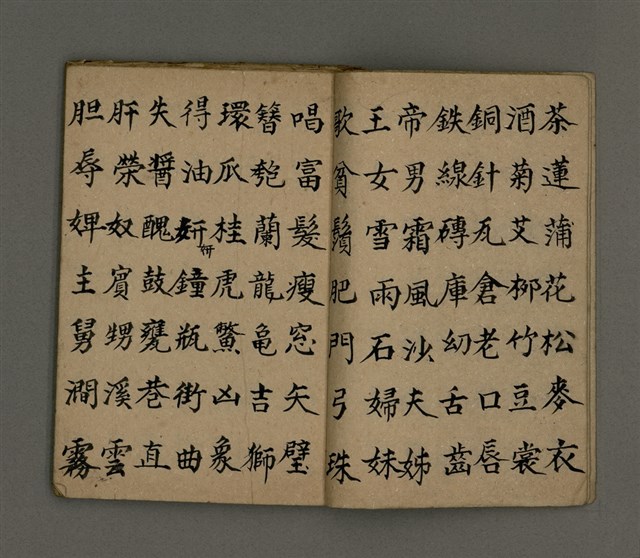 茶蓮蒲花松麥衣
酒菊艾柳竹豆裳
銅針瓦倉老口唇
鉄線磚庫幼舌齒
帝男霜風沙夫姊
王女雪雨石婦妹
歌貧鬚肥門弓珠
唱富髮瘦窓矢璧
簪匏蘭龍亀吉獅
環瓜桂虎鱉凶象
得油妍鐘瓶街曲
妍
失醬醜鼓甕巷直
肝榮奴賓甥溪雲
胆辱婢主舅澗霧